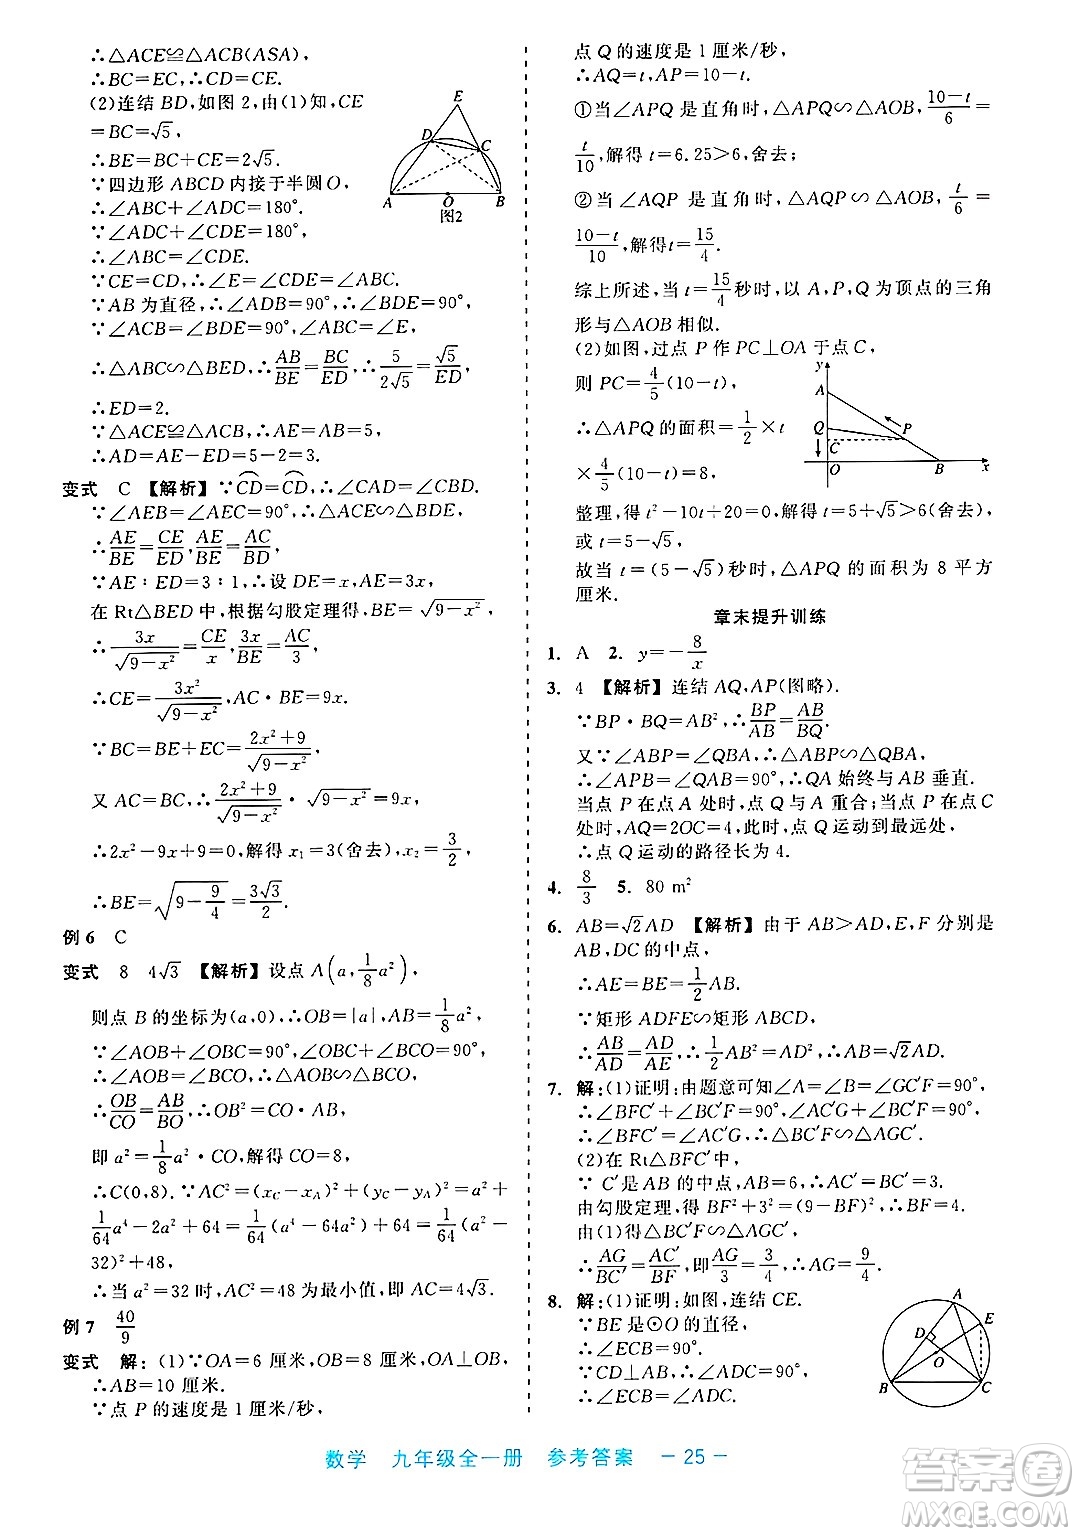 ∴△ACE≌△ACB(ASA)
∴BC=EC. ∴CD=CE.
(2)连结 BD,如图 2,由(1)知,CE
=BC=√5,
∴BE=BC+CE=2√5.
∵四边形 ABCD 内接于半圆 O,
∴∠ABC+∠ADC=180°.
∵∠ADC+∠CDE=180°,
∴∠ABC=∠CDE.
∵CE=CD,∴∠E=∠CDE=∠ABC.
∵AB 为直径,∴∠ADB=90°,∴∠BDE=90°,
∵∠ACB=∠BDE=90°,∠ABC=∠E,
∴△ABC∽△BED,∴AB/BE=BC/ED,∴5/2√5=√5/ED,
∴ED=2.
∵△ACE≌△ACB,∴AE=AB=5,
∴AD=AE-ED=5-2=3.
E
D
C
A
O
B
图2
变式 C 【解析】∵CD=CD,∴∠CAD=∠CBD.
∵∠AEB=∠AEC=90°,∴△ACE∽△BDE,
∴AE/BE=CE/ED,AE/BE=AC/BD.
∵AE∶ED=3∶1,∴设 DE=x,AE=3x,
在 Rt△BED 中,根据勾股定理得,BE=√9-x²,
∴3x/√9-x²=CE/x,3x/BE=AC/3,
∴CE=3x²/√9-x²,AC·BE=9x.
∵BC=BE+EC=2x²+9/√9-x²,
又 AC=BC,∴2x²+9/√9-x²·√9-x²=9x,
∴2x²-9x+9=0,解得 x₁=3(舍去),x₂=3/2,
∴BE=√9-9/4=3√3/2.
例 6 C
变式 8 4√3 【解析】设点 A(a,1/8a²),
则点 B 的坐标为(a,0),∴OB=|a|,AB=1/8a²,
∵∠AOB+∠OBC=90°,∠OBC+∠BCO=90°,
∴∠AOB=∠BCO,∴△AOB∽△BCO,
∴OB/CO=AB/BO,∴OB²=AB·CO,
即 a²=1/8a²·CO,解得 CO=8,
∴C(0,8).∵AC²=(x_C-x_A)²+(y_C-y_A)²=
1/64a⁴-2a²+64+a²=1/64(a⁴-64a²)+64=1/64(a²-
32)²+48,
∴当 a²=32 时,AC²=48 为最小值,即 AC=4√3.
例 7 40/9
变式 解:(1)∵OA=6 厘米,OB=8 厘米,OA⊥OB,
∴AB=10 厘米.
∵点 P 的速度是 1 厘米/秒,
点 Q 的速度是 1 厘米/秒,
∴AQ=t,AP=10-t.
①当∠APQ 是直角时,△APQ∽△AOB,10-t/6=
t/10,解得 t=6.25>6,舍去;
②当∠AQP 是直角时,△AQP∽△AOB,t/6=
10-t/10,解得t=15/4.
综上所述,当 t=15/4秒时,以 A,P,Q 为顶点的三角
形与△AOB 相似.
(2)如图,过点 P 作 PC⊥OA 于点 C,
则 PC=4/5(10-t),
∴△APQ 的面积=1/2×t
×4/5(10-t)=8,
y
A
Q
C
P
O
B
x
整理,得 t²-10t÷20=0,解得 t=5+√5>6(舍去),
或 t=5-√5,
故当 t=(5-√5)秒时,△APQ 的面积为 8 平方
厘米.
章末提升训练
1. A 2. y=-8/x
3. 4 【解析】连结 AQ,AP(图略).
∵BP·BQ=AB²,∴BP/AB=AB/BQ.
又∵∠ABP=∠QBA,∴△ABP∽△QBA,
∴∠APB=∠QAB=90°,∴QA 始终与 AB 垂直.
当点 P 在点 A 处时,点 Q 与 A 重合;当点 P 在点 C
处时,AQ=2OC=4,此时,点 Q 运动到最远处,
∴点 Q 运动的路径长为 4.
4. 8/3 5. 80 m²
6. AB=√2AD 【解析】由于 AB>AD,E,F 分别是
AB,DC 的中点,
∴AE=BE=1/2AB.
∵矩形 ADFE∽矩形 ABCD,
∴AB/AD=AD/AE,∴1/2AB²=AD²,∴AB=√2AD.
7. 解:(1)证明:由题意可知∠A=∠B=∠GC′F=90°,
∴∠BFC′+∠BC′F=90°,∠AC′G+∠BC′F=90°,
∴∠BFC′=∠AC′G,∴△BC′F∽△AGC′.
(2)在 Rt△BFC′中,
∵C′是 AB 的中点,AB=6,∴AC′=BC′=3.
由勾股定理,得 BF²+3²=(9-BF)²,∴BF=4.
由(1)得△BC′F∽△AGC′,
∴AG/BC′=AC′/BF,即AG/3=3/4,∴AG=9/4.
8. 解:(1)证明:如图,连结 CE.
∵BE 是⊙O 的直径,
∴∠ECB=90°.
∵CD⊥AB,∴∠ADC=90°,
∴∠ECB=∠ADC.
A
E
D
O
B
C
数学 九年级全一册 参考答案 -25-
答案圈
MXQE.COM